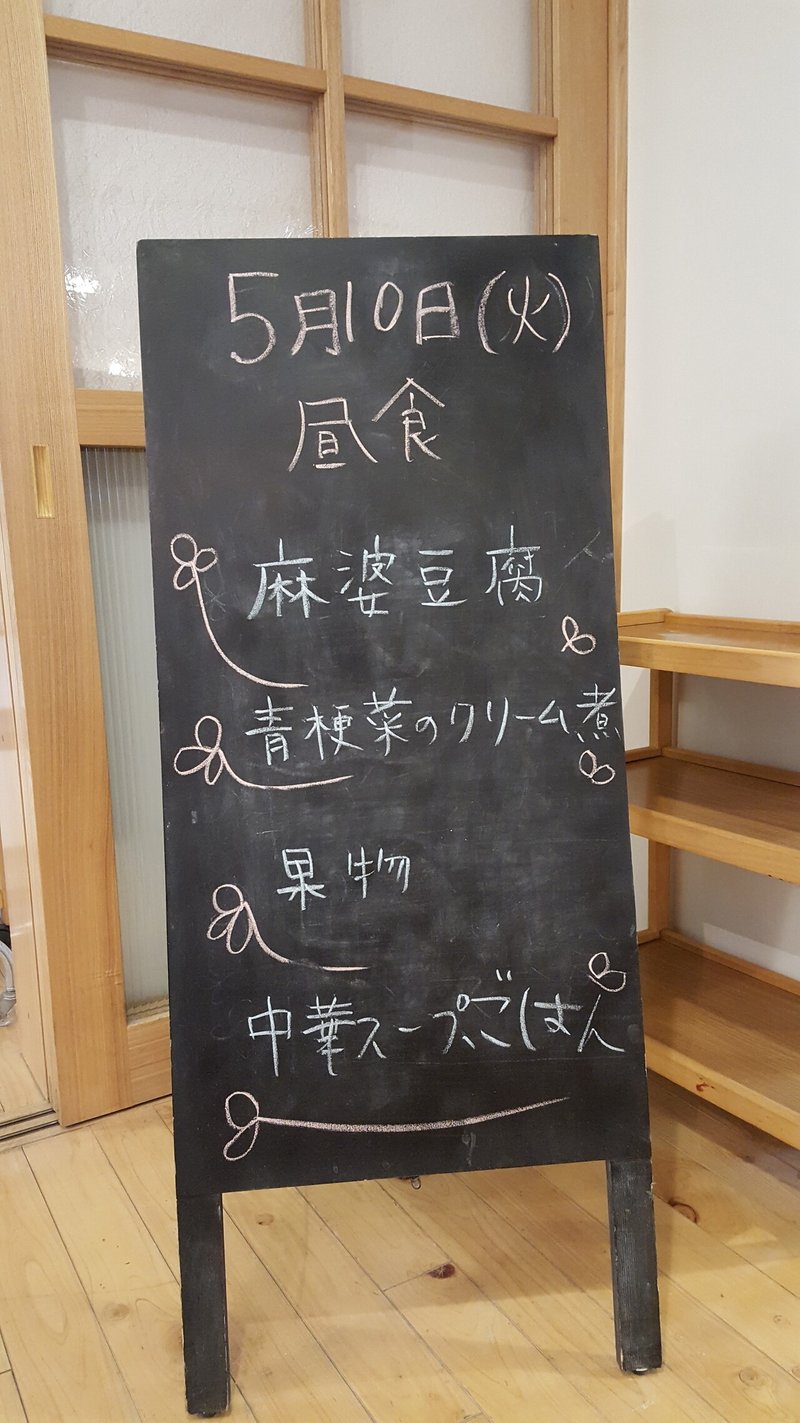 5月10日(火)
昼食
麻婆豆腐
青梗菜のクリーム煮
果物
中華スープ、ごはん